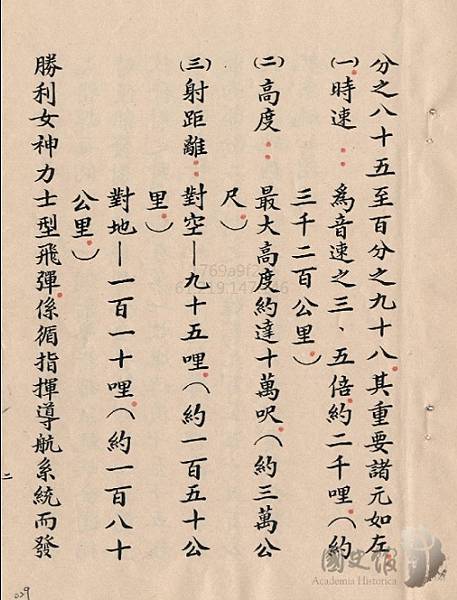 分之八十五至百分之九十八。其重要諸元如左：
(一)時速：為音速之三、五倍。約二千哩。（約
三千二百公里。）
(二)高度：最大高度約達十萬呎。（約三萬公
尺。）
(三)射距離：對空—九十五哩。（約一百五十公
里。）
對地—一百一十哩。（約一百八十
公里。）
勝利女神力士型飛彈。係循指揮導航系統而發
二
029
國史館
Academia Historica